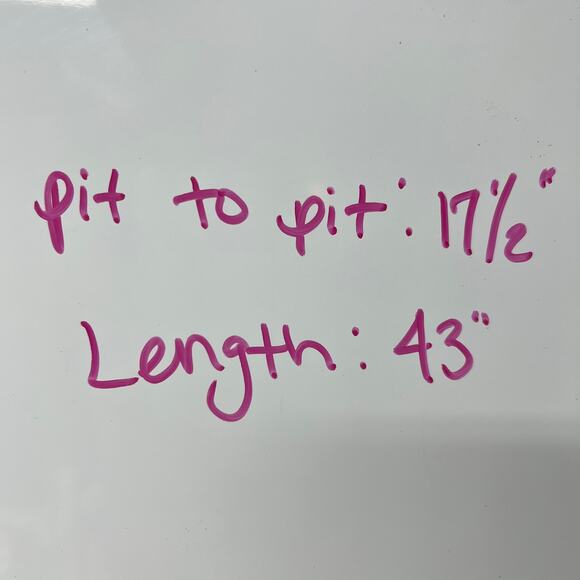 pit to pit: 17 1/2"
Length: 43"